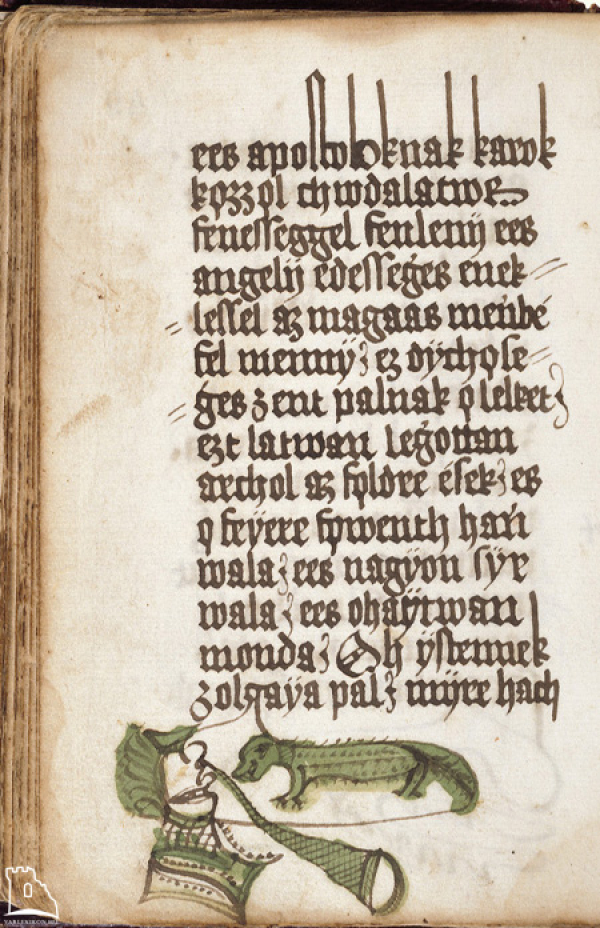 ees apostoloknak karok
kozzol chwdalatws
fenesseggel fenlenÿ ees
angelÿ edesseges enek=
lessel az magaas menbe
fel mennÿ; ez dÿchose=
ges zent palnak o lelket;
ezt latwan legottan
arcchol az foldre esek; es
o feÿere fowenth hań
wala; ees nagÿon sÿr
wala; ees ohaÿtwan
monda; Oh ÿstennek
zolgaÿa pal; mÿre hach
VARLEXIKON.HU